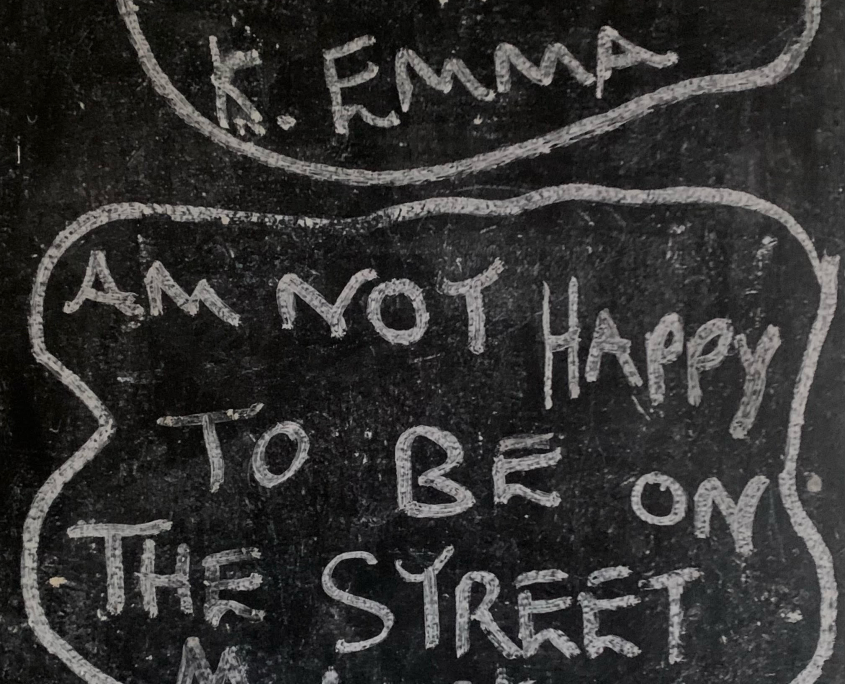 K. EMMA
AM NOT HAPPY
TO BE ON
THE STREET